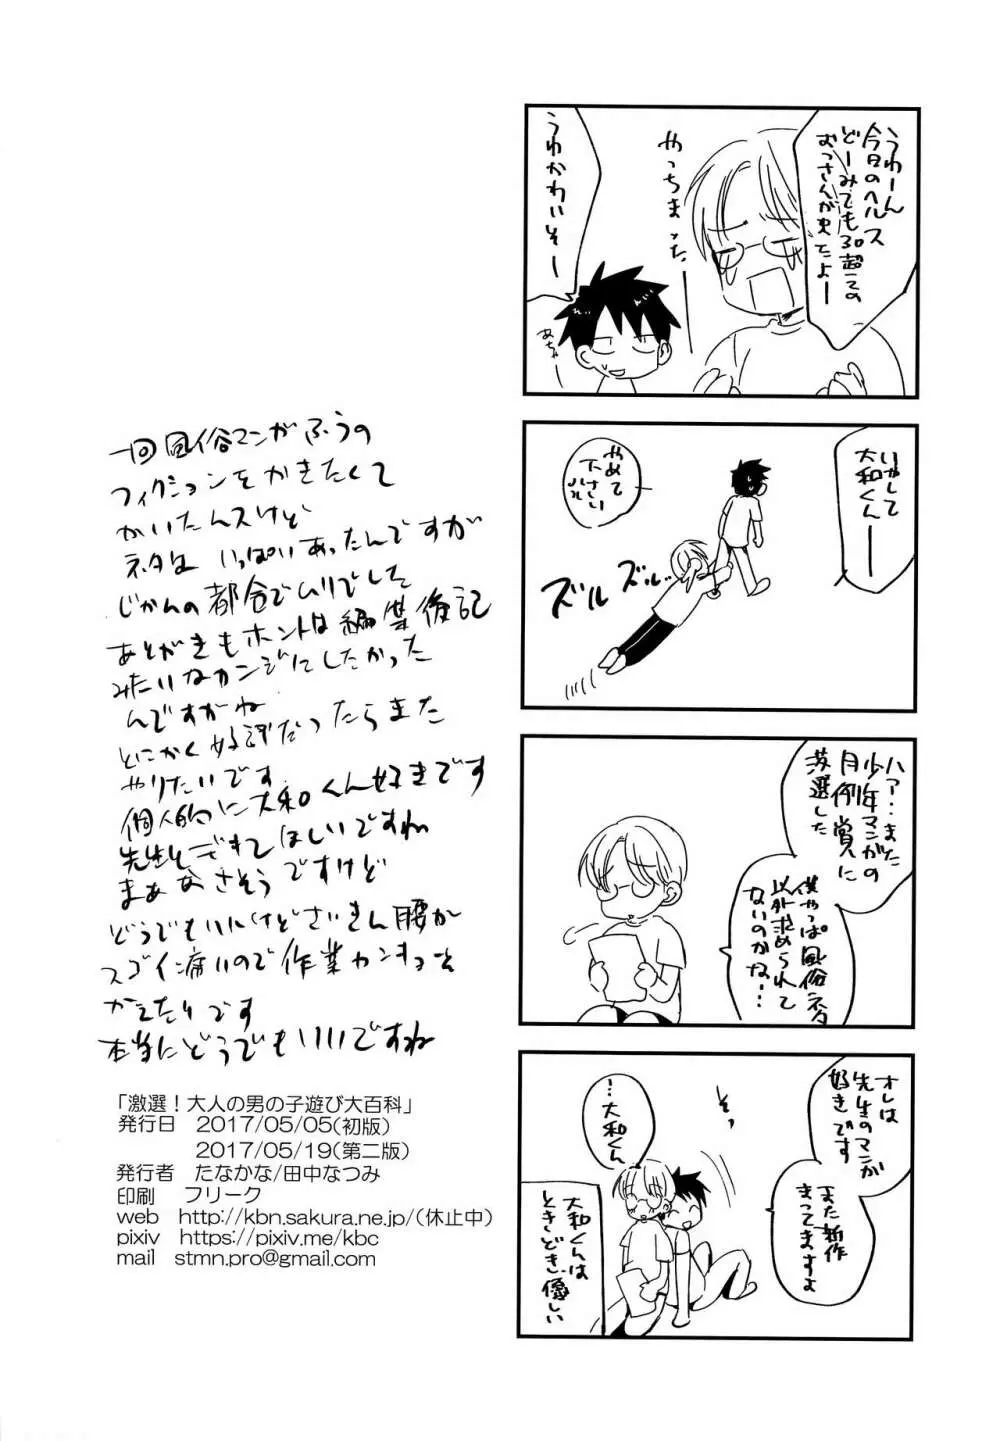 うわーん
今日のヘルス
どーみても30超えての
おっさんが来てよー
やっちまった
うわかわいそー
あちゃー
いやして
大和くんー
やめて
下さい
ズルズル
ハァ…また
少年マンガの
月例賞に
落選した
僕やっぱ風俗ネタ
以外求められて
ないのかな…
オレは
先生のマンガ
好きです
また新作
まってますよ
…大和くん
大和くんは
ときどき優しい
一回風俗マンガふうの
フィクションをかきたくて
かいたんスけど
ネタは いっぱいあったんですが
じかんの都合でムリでした
あとがきもホントは編集後記
みたいなカンジにしたかった
んですがね
とにかく好評だったらまた
やりたいです
個人的に大和くん好きです
先生とできてほしいですね
まぁなさそうですけど
どうでもいいけどさいきん腰が
スゴイ痛いので作業カンキョーを
かえたいです
本当にどうでもいいですね
「激選！大人の男の子遊び大百科」
発行日 2017/05/05(初版)
2017/05/19(第二版)
発行者 たなかな/田中なつみ
印刷 フリーク
web http://kbn.sakura.ne.jp/(休止中)
pixiv https://pixiv.me/kbc
mail stmn.pro@gmail.com